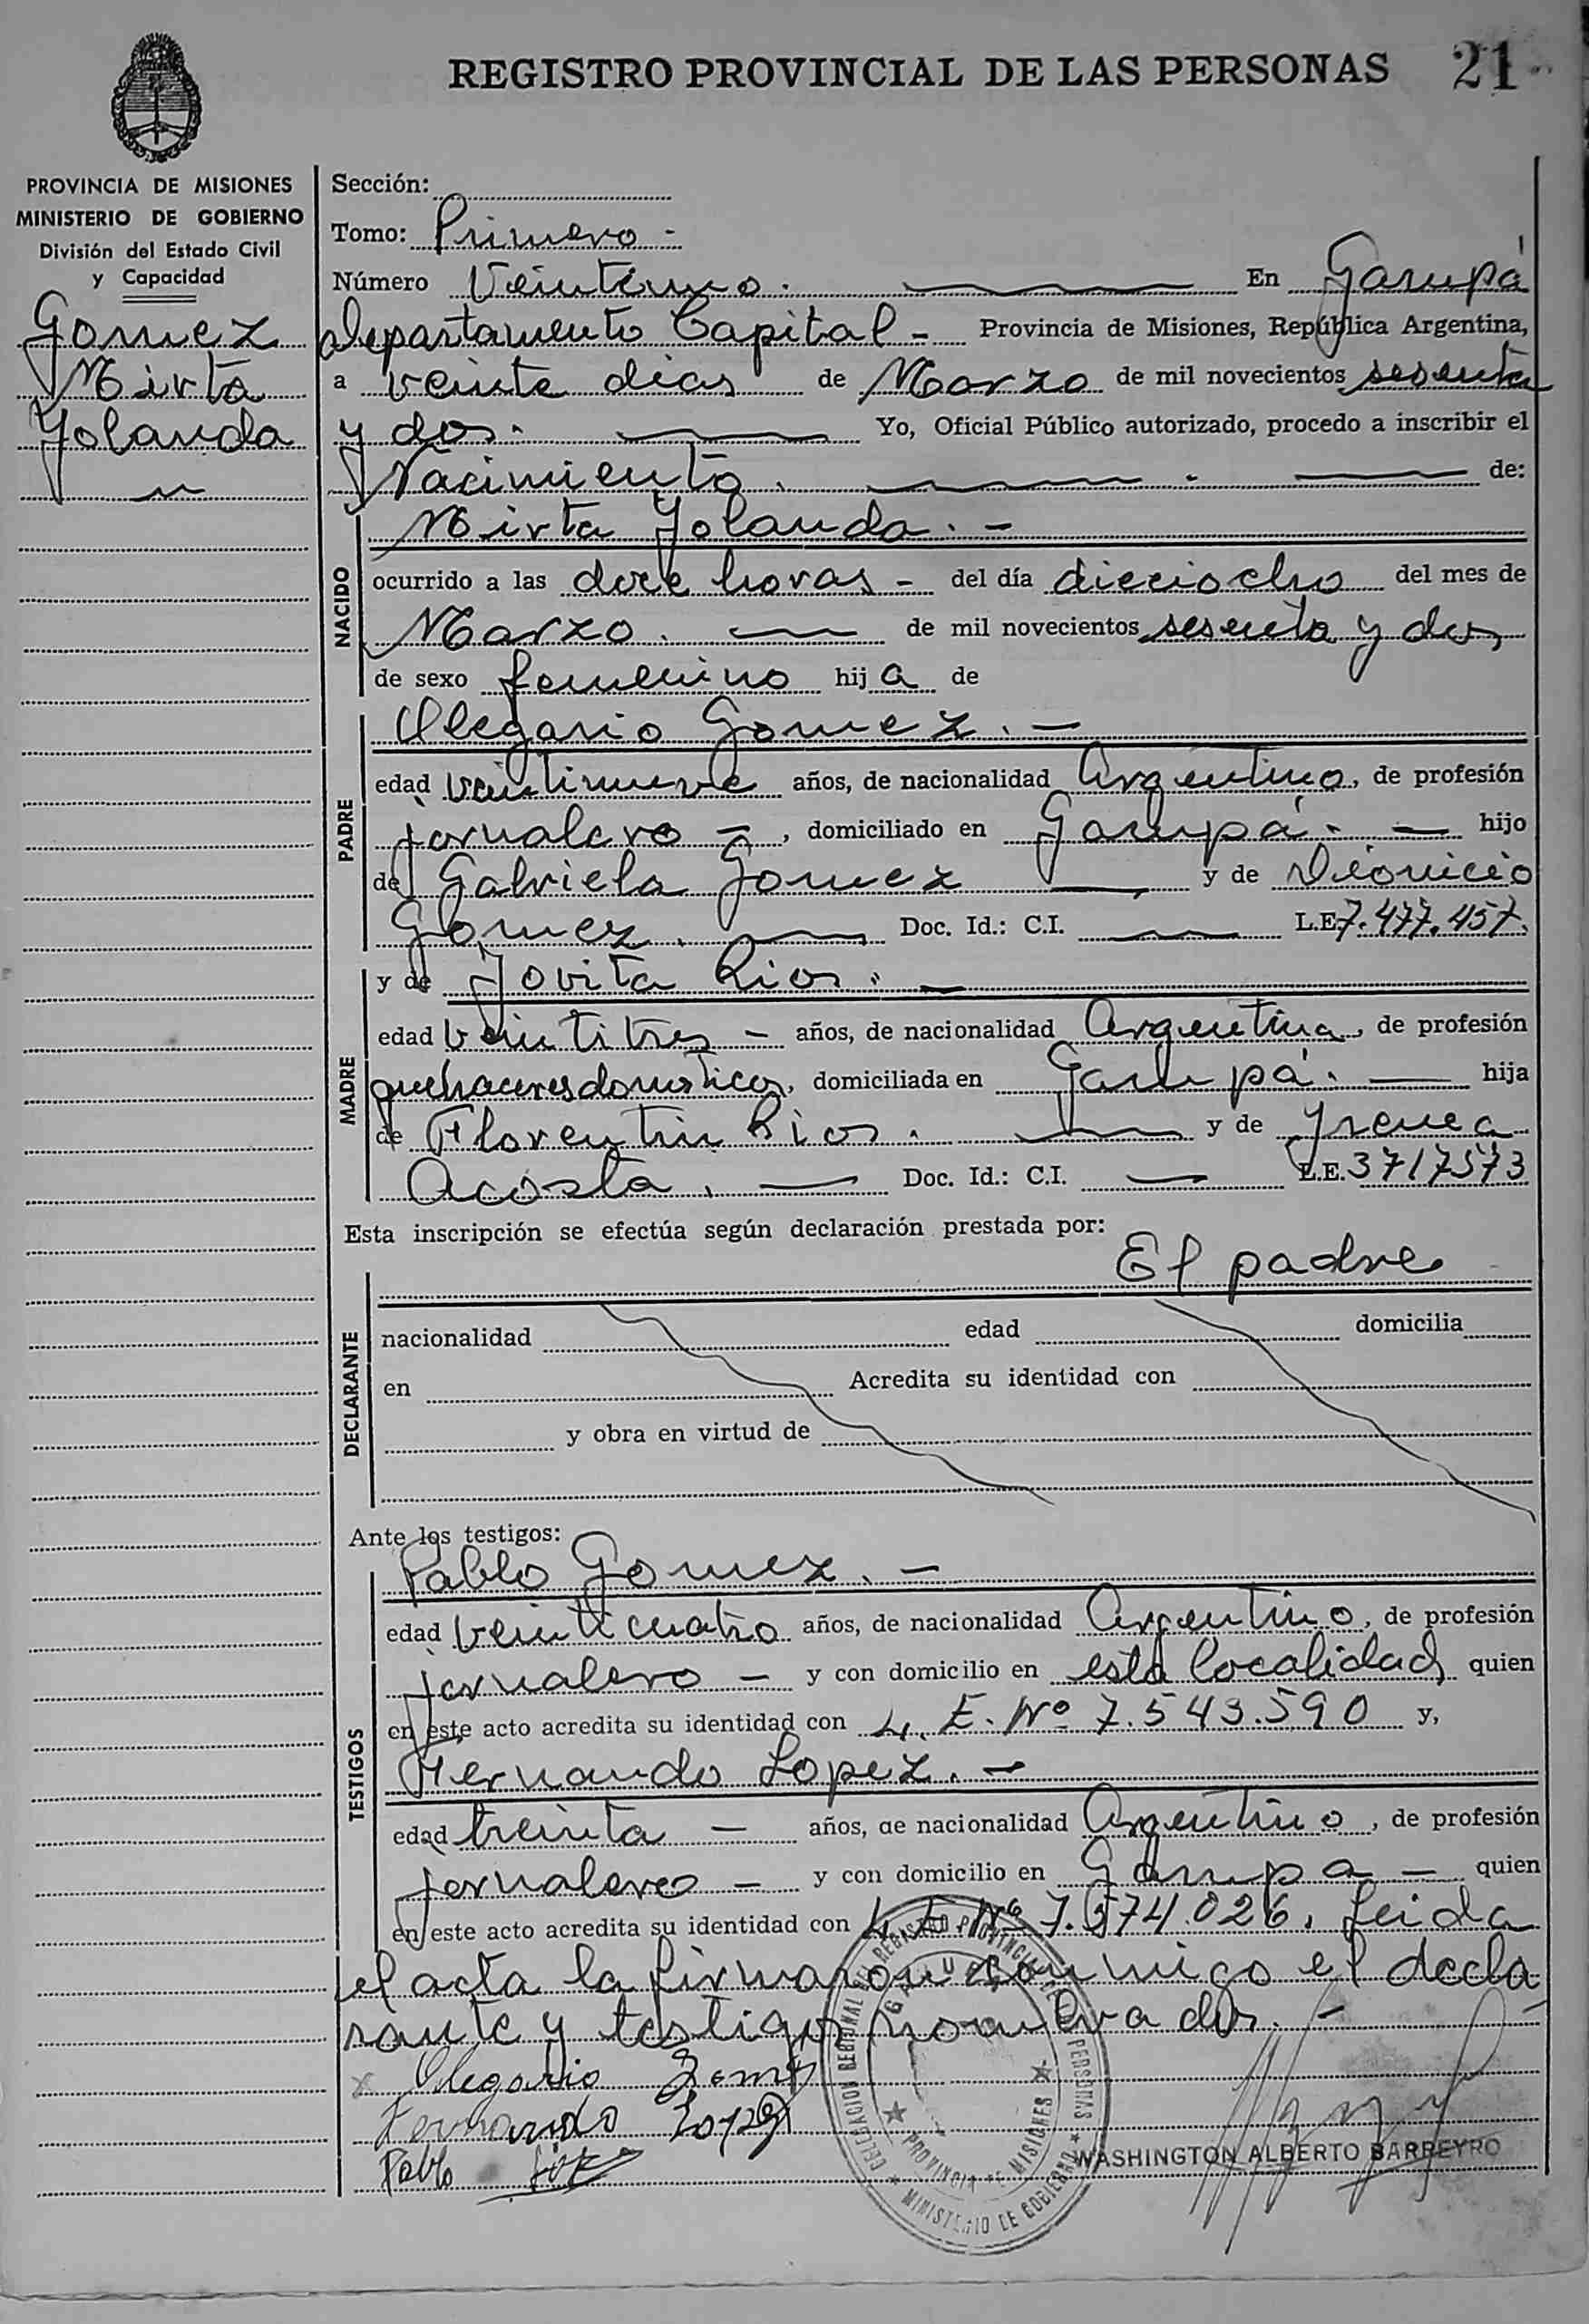 REGISTRO PROVINCIAL DE LAS PERSONAS 21
PROVINCIA DE MISIONES
MINISTERIO DE GOBIERNO
División del Estado Civil
y Capacidad
Gomez
Mirta
Yolanda
Sección:
Tomo: Primero -
Número Veintiuno. En Garupá
departamento Capital - Provincia de Misiones, República Argentina,
a veinte dias de Marzo de mil novecientos sesenta
y dos. Yo, Oficial Público autorizado, procedo a inscribir el
Nacimiento. de:
NACIDO
Mirta Yolanda. -
ocurrido a las doce horas - del día dieciocho del mes de
Marzo. de mil novecientos sesenta y dos
de sexo femenino hija de
PADRE
Olegario Gomez. -
edad veintinueve años, de nacionalidad Argentino, de profesión
jornalero -, domiciliado en Garupá. - hijo
de Gabriela Gomez y de Dionicio
Gomez. Doc. Id.: C.I. L.E. 7.477.457.
MADRE
y de Jovita Rios. -
edad veintitres - años, de nacionalidad Argentina, de profesión
quehaceres domesticos, domiciliada en Garupá. - hija
de Florentin Rios. y de Yrenea
Acosta. Doc. Id.: C.I. L.E. 3717573
Esta inscripción se efectúa según declaración prestada por:
El padre
DECLARANTE
nacionalidad edad domicilia
en Acredita su identidad con
y obra en virtud de
Ante los testigos:
TESTIGOS
Pablo Gomez. -
edad veinticuatro años, de nacionalidad Argentino, de profesión
jornalero - y con domicilio en esta localidad, quien
en este acto acredita su identidad con L. E. Nº 7.543.590 y,
Hernando Lopez. -
edad treinta - años, de nacionalidad Argentino, de profesión
jornalero - y con domicilio en Garupa - quien
en este acto acredita su identidad con L. E. Nº 7.574.026, Leida
el acta la firmaron conmigo el decla
rante y testigos nombrados. -
x Olegario Gomez
Fernando Lopez
Pablo
WASHINGTON ALBERTO BARREYRO
DELEGACION REGIONAL DEL REGISTRO PROVINCIAL DE PERSONAS
MINISTERIO DE GOBIERNO
PROVINCIA DE MISIONES